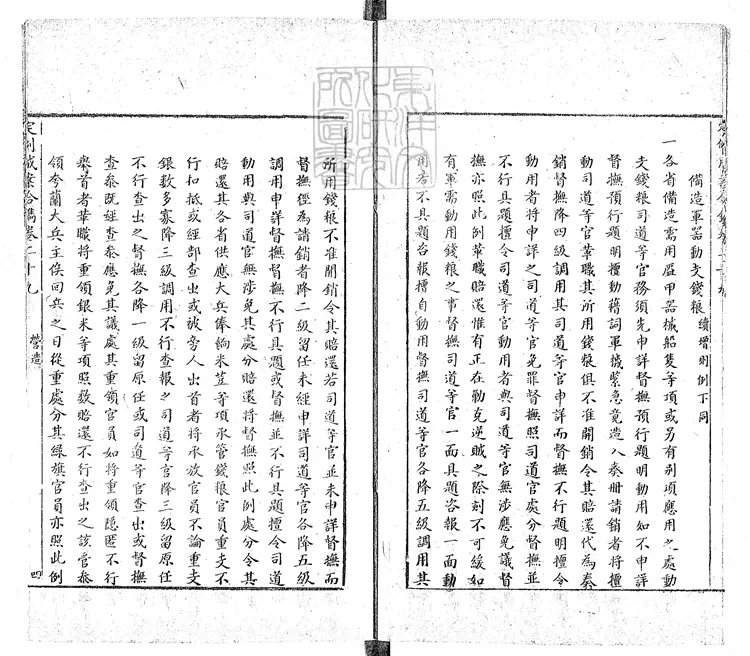 備造軍器動支錢粮 續增則例下同
一各省備造需用盔甲器械船隻等項或另有别項應用之處動
支錢粮司道等官務須先申詳督撫預行題明動用如不申詳
督撫預行題明擅動藉詞軍機緊急竟造入奏册請銷者將擅
動司道等官革職其所用錢粮俱不准開銷令其賠還代為奏
銷督撫降四級調用其司道等官申詳而督撫不行題明擅令
動用者將申詳之司道等官免罪督撫照司道官處分督撫並
不行具題擅令司道等官動用者與司道等官無涉應免議督
撫亦照此例革職賠還惟有正在勦克逆賊之際刻不可緩如
有軍需動用錢粮之事督撫司道等官一面具題咨報一面動
用若不具題咨報擅自動用督撫司道等官各降五級調用其
所用錢粮不准開銷令其賠還若司道等官並未申詳督撫而
督撫徑為請銷者降二級留任未經申詳司道等官各降五級
調用申詳督撫督撫不行具題或督撫並不行具題擅令司道
動用與司道等官無涉免其處分賠還將督撫照此例處分令其
賠還其各省供應大兵俸餉米荳等項承管錢粮官員重支不
行扣抵或經部查出或被旁人出首者將承放官員不論重支
銀数多寡降三級調用不行查報之司道等官降三級留原任
不行查出之督撫各降一級留原任或司道等官查出或督撫
查叅既經查叅應免其議處其重領官員如將重領隱匿不行
舉首者革職將重領銀米等項照数賠還不行查出之該管叅
領夸蘭大兵主俟回兵之日從重處分其緑旗官員亦照此例
定例成案合鐫卷二十九
營造
四